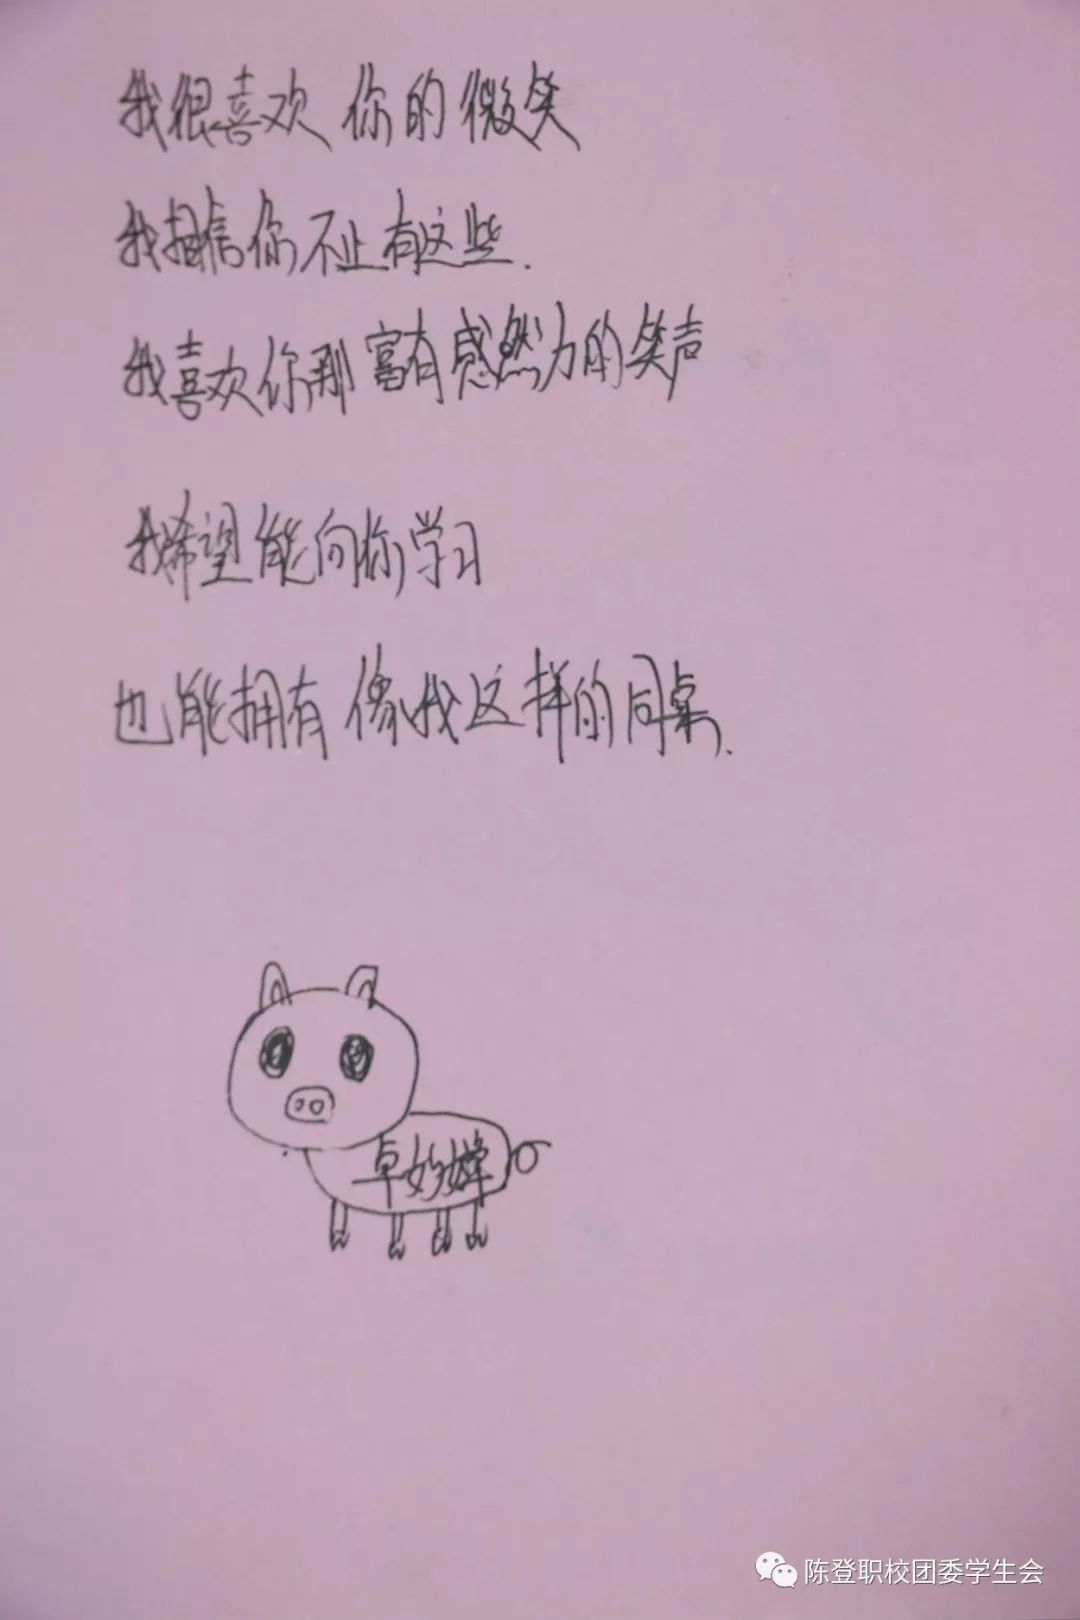 我很喜欢你的微笑
我相信你不止有这些.
我喜欢你那富有感然力的笑声
我希望能向你学习
也能拥有像我这样的同桌.
卓妙婵
陈登职校团委学生会